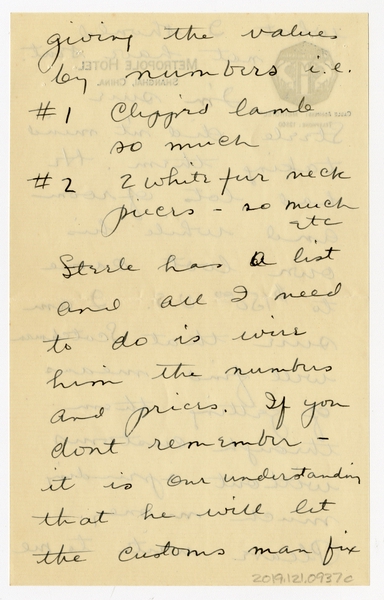 giving the values
by numbers i.e.
#1 Clipped lamb
so much
#2 2 white fur neck
pieces - so much
etc
Steele has a list
and all I need
to do is wire
him the numbers
and prices. If you
dont remember -
it is our understanding
that he will let
the customs man fix
2019.121.0937c
METROPOLE HOTEL
SHANGHAI, CHINA.